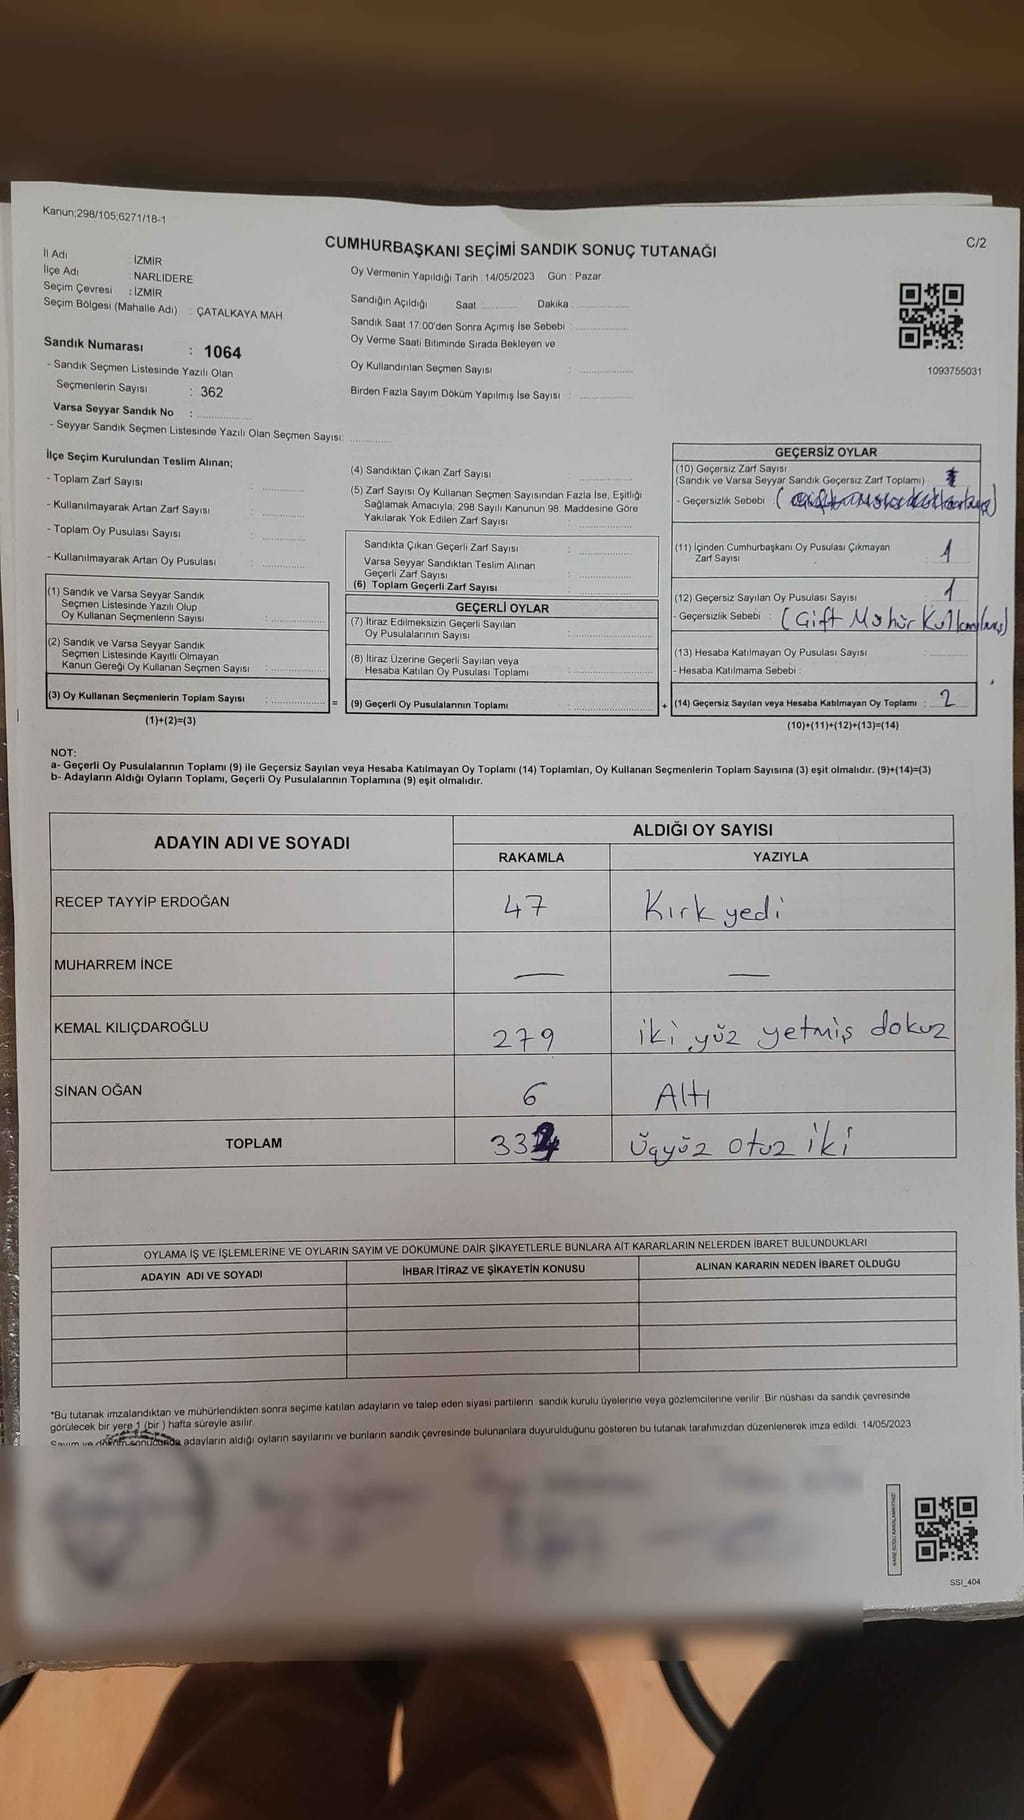 Kanun;298/105;6271/18-1
C/2
CUMHURBAŞKANI SEÇİMİ SANDIK SONUÇ TUTANAĞI
İl Adı : İZMİR
İlçe Adı : NARLIDERE
Seçim Çevresi : İZMİR
Seçim Bölgesi (Mahalle Adı) : ÇATALKAYA MAH
Sandık Numarası : 1064
- Sandık Seçmen Listesinde Yazılı Olan
Seçmenlerin Sayısı : 362
Varsa Seyyar Sandık No : ..............
- Seyyar Sandık Seçmen Listesinde Yazılı Olan Seçmen Sayısı: ............
Oy Vermenin Yapıldığı Tarih : 14/05/2023 Gün : Pazar
Sandığın Açıldığı Saat ........... Dakika ................
Sandık Saat 17:00'den Sonra Açımış İse Sebebi : ................
Oy Verme Saati Bitiminde Sırada Bekleyen ve
Oy Kullandırılan Seçmen Sayısı : ................
Birden Fazla Sayım Döküm Yapılmış İse Sayısı : ................
1093755031
İlçe Seçim Kurulundan Teslim Alınan;
- Toplam Zarf Sayısı : .............
- Kullanılmayarak Artan Zarf Sayısı : .............
- Toplam Oy Pusulası Sayısı : .............
- Kullanılmayarak Artan Oy Pusulası : .............
(1) Sandık ve Varsa Seyyar Sandık
Seçmen Listesinde Yazılı Olup
Oy Kullanan Seçmenlerin Sayısı : ................
(2) Sandık ve Varsa Seyyar Sandık
Seçmen Listesinde Kayıtlı Olmayan
Kanun Gereği Oy Kullanan Seçmen Sayısı : ................
(3) Oy Kullanan Seçmenlerin Toplam Sayısı : ................
(1)+(2)=(3)
=
(4) Sandıktan Çıkan Zarf Sayısı : ................
(5) Zarf Sayısı Oy Kullanan Seçmen Sayısından Fazla İse, Eşitliği
Sağlamak Amacıyla, 298 Sayılı Kanunun 98. Maddesine Göre
Yakılarak Yok Edilen Zarf Sayısı : ................
Sandıkta Çıkan Geçerli Zarf Sayısı : ................
Varsa Seyyar Sandıktan Teslim Alınan
Geçerli Zarf Sayısı : ................
(6) Toplam Geçerli Zarf Sayısı : ................
GEÇERLİ OYLAR
(7) İtiraz Edilmeksizin Geçerli Sayılan
Oy Pusulalarının Sayısı : ................
(8) İtiraz Üzerine Geçerli Sayılan veya
Hesaba Katılan Oy Pusulası Toplamı : ................
(9) Geçerli Oy Pusulalarının Toplamı : ................
+
GEÇERSİZ OYLAR
(10) Geçersiz Zarf Sayısı
(Sandık ve Varsa Seyyar Sandık Geçersiz Zarf Toplamı) :
- Geçersizlik Sebebi
(11) İçinden Cumhurbaşkanı Oy Pusulası Çıkmayan
Zarf Sayısı : 1
(12) Geçersiz Sayılan Oy Pusulası Sayısı : 1
- Geçersizlik Sebebi : (Çift Mühür Kullanılmış)
(13) Hesaba Katılmayan Oy Pusulası Sayısı : ..........
- Hesaba Katılmama Sebebi :
(14) Geçersiz Sayılan veya Hesaba Katılmayan Oy Toplamı : 2
(10)+(11)+(12)+(13)=(14)
NOT:
a- Geçerli Oy Pusulalarının Toplamı (9) ile Geçersiz Sayılan veya Hesaba Katılmayan Oy Toplamı (14) Toplamları, Oy Kullanan Seçmenlerin Toplam Sayısına (3) eşit olmalıdır. (9)+(14)=(3)
b- Adayların Aldığı Oyların Toplamı, Geçerli Oy Pusulalarının Toplamına (9) eşit olmalıdır.
ADAYIN ADI VE SOYADI ALDIĞI OY SAYISI
RAKAMLA YAZIYLA
RECEP TAYYİP ERDOĞAN 47 Kırk yedi
MUHARREM İNCE — —
KEMAL KILIÇDAROĞLU 279 iki yüz yetmiş dokuz
SİNAN OĞAN 6 Altı
TOPLAM 332 Üçyüz otuz iki
OYLAMA İŞ VE İŞLEMLERİNE VE OYLARIN SAYIM VE DÖKÜMÜNE DAİR ŞİKAYETLERLE BUNLARA AİT KARARLARIN NELERDEN İBARET BULUNDUKLARI
ADAYIN ADI VE SOYADI İHBAR İTİRAZ VE ŞİKAYETİN KONUSU ALINAN KARARIN NEDEN İBARET OLDUĞU
*Bu tutanak imzalandıktan ve mühürlendikten sonra seçime katılan adayların ve talep eden siyasi partilerin sandık kurulu üyelerine veya gözlemcilerine verilir .Bir nüshası da sandık çevresinde
görülecek bir yere 1 (bir ) hafta süreyle asılır.
Sayım ve döküm sonucunda adayların aldığı oyların sayılarını ve bunların sandık çevresinde bulunanlara duyurulduğunu gösteren bu tutanak tarafımızdan düzenlenerek imza edildi. 14/05/2023
KARE KODU KARALAMAYINIZ!
SSI_404